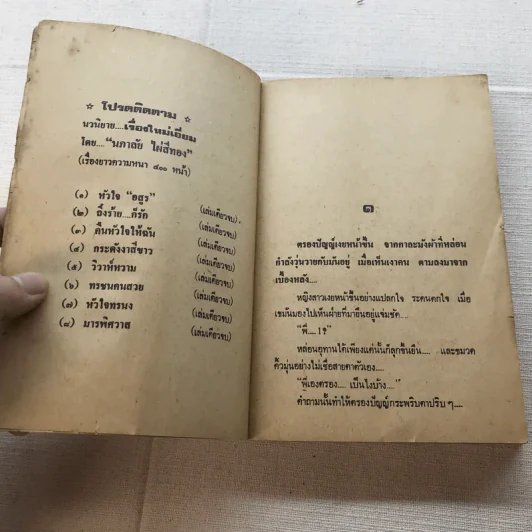 ☆ โปรดติดตาม ☆
นวนิยาย....เรื่องใหม่เอี่ยม
โดย.... "นภาลัย ไผ่สีทอง"
(เรื่องยาวความหนา ๔๐๐ หน้า)
(๑) หัวใจ "อสูร" (เล่มเดียวจบ)
(๒) ถึงร้าย....ก็รัก (เล่มเดียวจบ)
(๓) คืนหัวใจให้ฉัน (เล่มเดียวจบ)
(๔) กระดังงาสีขาว (เล่มเดียวจบ)
(๕) วิวาห์หวาม (เล่มเดียวจบ)
(๖) ทรชนคนสวย (เล่มเดียวจบ)
(๗) หัวใจทรนง (เล่มเดียวจบ)
(๘) มารพิศวาส (เล่มเดียวจบ)
๑
ครองปัญญ์เงยหน้าขึ้น จากกาละมังผ้าที่หล่อน
กำลังวุ่นวายกับมันอยู่ เมื่อเห็นเงาคน ตาบลงมาจาก
เบื้องหลัง....
หญิงสาวเงยหน้าขึ้นอย่างแปลกใจ ระคนตกใจ เมื่อ
เขม้นมองไปเห็นฝ่ายที่มายืนอยู่แจ่มชัด....
"พี่.... !?"
หล่อนอุทานได้เพียงแค่นั้นก็ลุกขึ้นยืน.... และขมวด
คิ้วมุ่นอย่างไม่เชื่อสายตาตัวเอง....
"พี่เองครอง.... เป็นไงบ้าง...."
คำถามนั้นทำให้ครองปัญญ์กระพริบตาปริบ ๆ....